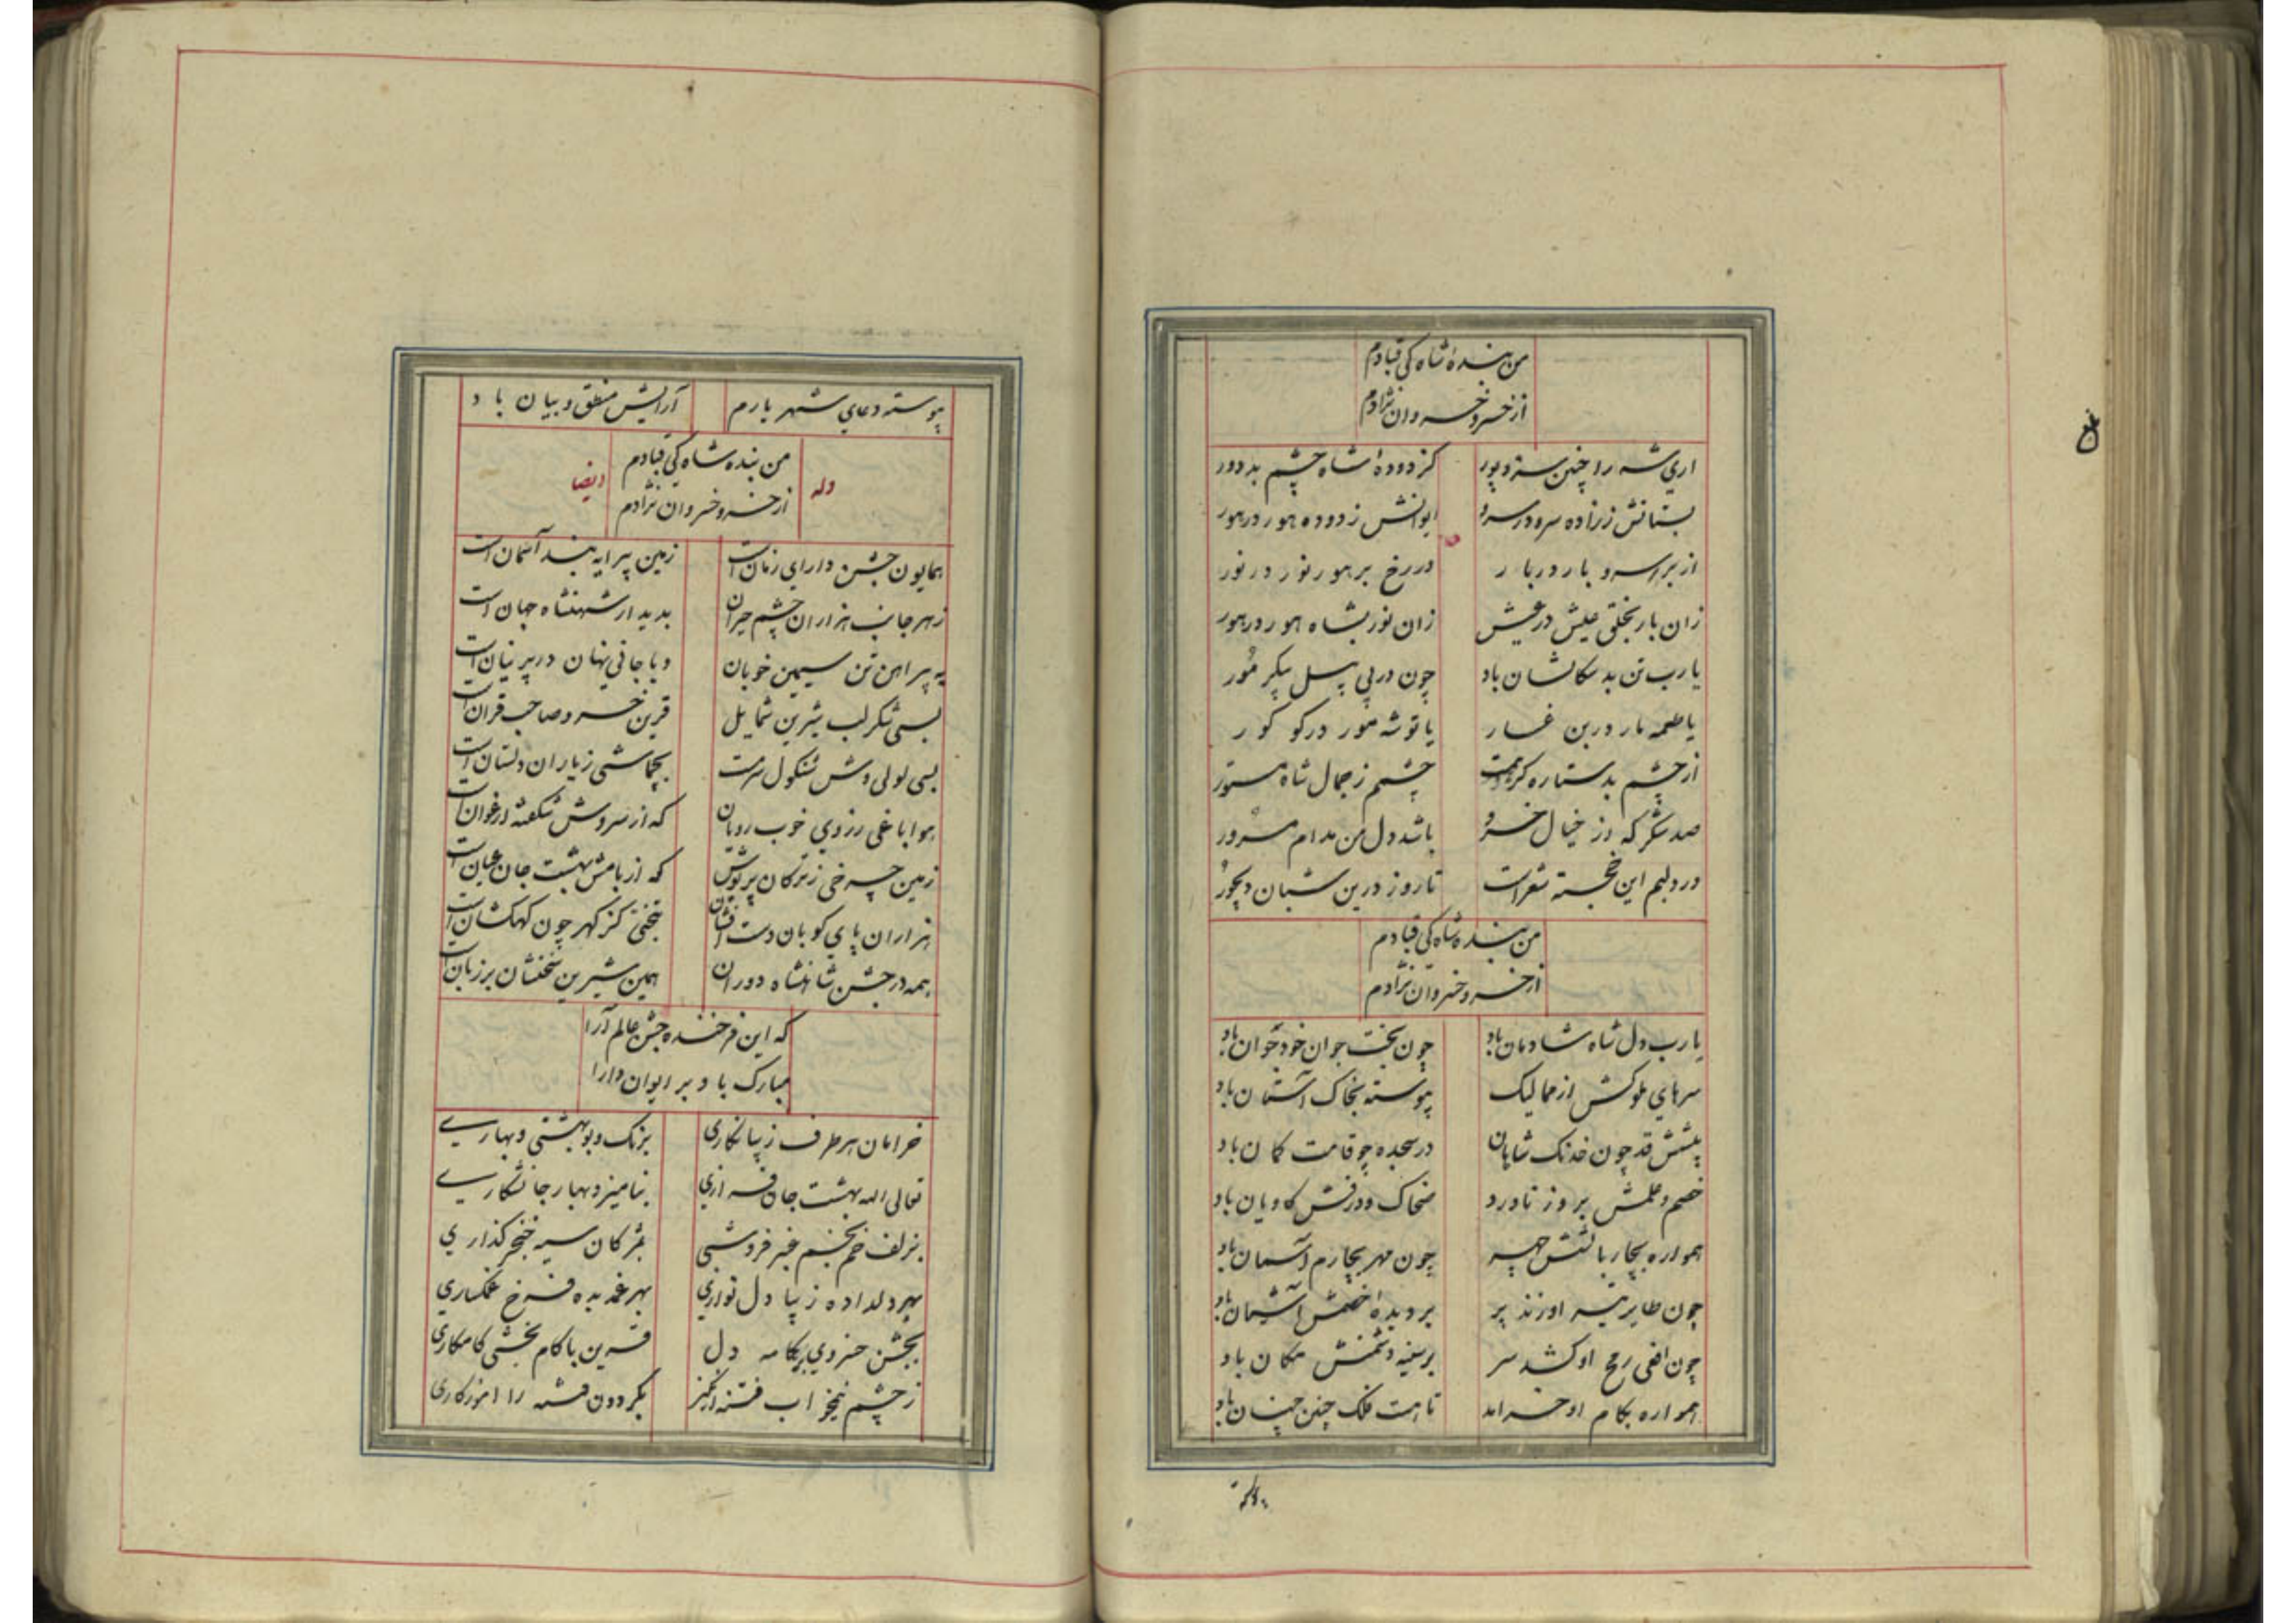 من بندهٔ شاه کی قبادم
از خسرو خسروان نژادم
اری شه را چنین سزد پور کز دودهٔ شاه چشم بد دور
بستانش ز زاده سرو در سرو ایوانش ز دوده هور در هور
از بر سرو بار در بار در رخ بر هور نور در نور
زان بار بخلق عیش در عیش زان نور بشاه هور در هور
یا رب تن بد سکالشان باد چون در پی پیل پیکر مور
یا طعمه مار در بن غار یا توشه مور در کو کور
از چشم بد ستاره کرهست چشمم ز جمال شاه مستور
صد شکر که از خیال خسرو باشد دل من مدام مسرور
درد لبم این خجسته شعر است تا روز درین شبان دیجور
من بنده شاه کی قبادم
از خسرو خسروان نژادم
یا رب دل شاه شادمان باد چون بخت جوان خود جوان باد
سرهای ملوکش از ممالیک پیوسته بخاک آستان باد
پیشش قد چون خدنک شاهان در سجده چو قامت کمان باد
خصم و علمش بروز ناورد ضحاک و درفش کاویان باد
همواره بچار بالشش چهر چون مهر بچارم آسمان باد
چون طایر تیر او زند پر بر دیدهٔ خصمش آشیان باد
چون افعی رمح او کشد سر بر سینه دشمنش مکان باد
همواره بکام او خرامد تا هست فلک چنین چنان باد
پیوسته دعای شهریارم آرایش منطق و بیان باد
وله
من بنده شاه کی قبادم
از خسرو خسروان نژادم
ایضا
همایون جشن دارای زمان است زمین پیرایه بند آسمان است
زهر جانب هزاران چشم حیران بدیدار شهنشاه جهان است
به پیراهن تن سیمین خوبان و یا جانی نهان در پرنیان است
بسی شکر لب شیرین شمایل قرین خسرو صاحب قران است
بسی لولی وش شنکول سرمست بجماشی ز یاران دلستان است
هوا باغی ز روی خوب رویان که از سروش شکفته ارغوان است
زمین چرخی ز ترکان پریوش که از بامش بهشت جان عیان است
هزاران پای کوبان دست افشان بتختی کز کهر چون کهکشان است
همه در جشن شاهنشاه دوران همین شیرین سخنشان بر زبان است
که این فرخنده جشن عالم آرا
مبارک باد بر ایوان دارا
خرامان هر طرف زیبا نکاری برنک و بو بهشتی و بهاری
تعالی الله بهشت جان فزائی بنامیزد بهار جانشکاری
بزلف خم بخم عنبر فروشی بمژکان سیه خنجر کذاری
بهر دلداده زیبا دل نوازی بهر غمدیده فرخ غمکساری
بجشن خسروی بر کامه دل قرین با کام بخشی کامکاری
ز چشم نیمخواب فتنه انکیز بکردون فتنه را اموزکاری